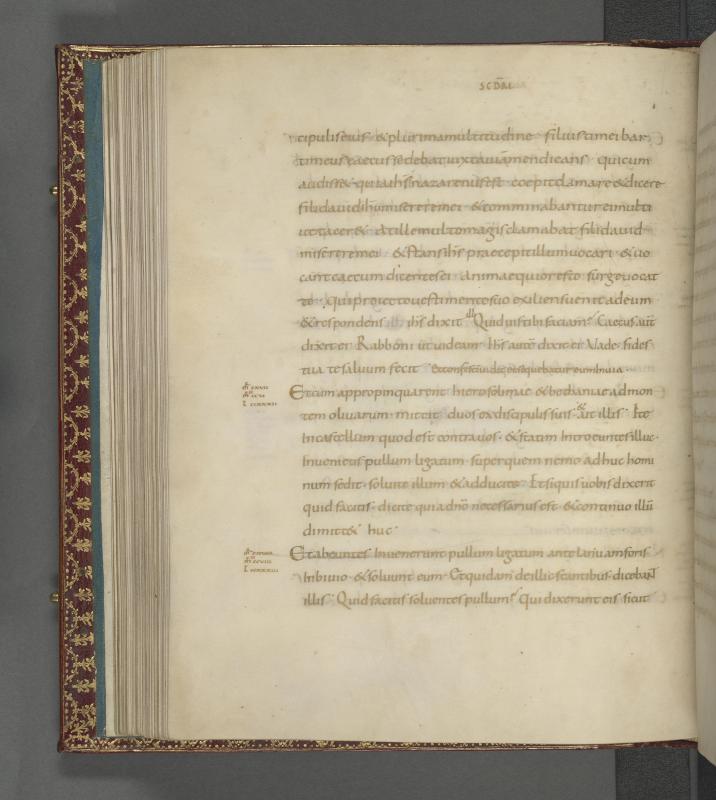 SCDM
cipuliseius & plurima multitudine filius timei bar
timeus caecus sedebat iuxta uiam mendicans qui cum
audiss& quia ihs nazarenus est coepit clamare & dicere
fili dauid ihu miserere mei & comminabantur ei multi
ut tacer& At ille multo magis clamabat fili dauid
miserere mei & stans ihs praecepit illum uocari & uo
cant caecum dicentes ei Animaequior esto surge uocat
te qui proiecto uestimento suo exiliens uenit ad eum
& respondens illi ihs dixit Quid uis tibi faciam Caecus aut
dixit ei Rabboni ut uideam Ihs autē dixit ei Vade fides
tua te saluum fecit Et confestim uidit & sequebatur eum in uia
Et cum appropinquarent hierosolimae & bethaniae ad mon
tem oliuarum mittit duos ex discipulis suis & ait illis Ite
in castellum quod est contra uos & statim Introeuntes illuc
Inuenietis pullum ligatum super quem nemo adhuc homi
num sedit soluite illum & adducite Et siquis uobis dixerit
quid facitis dicite quia dno necessarius est & continuo illū
dimitt& huc
Et abeuntes Inuenerunt pullum ligatum ante ianuam foris
In biuio & soluunt eum Et quidam de illic stantibus dicebant
illis Quid facitis soluentes pullum Qui dixerunt eis sicut